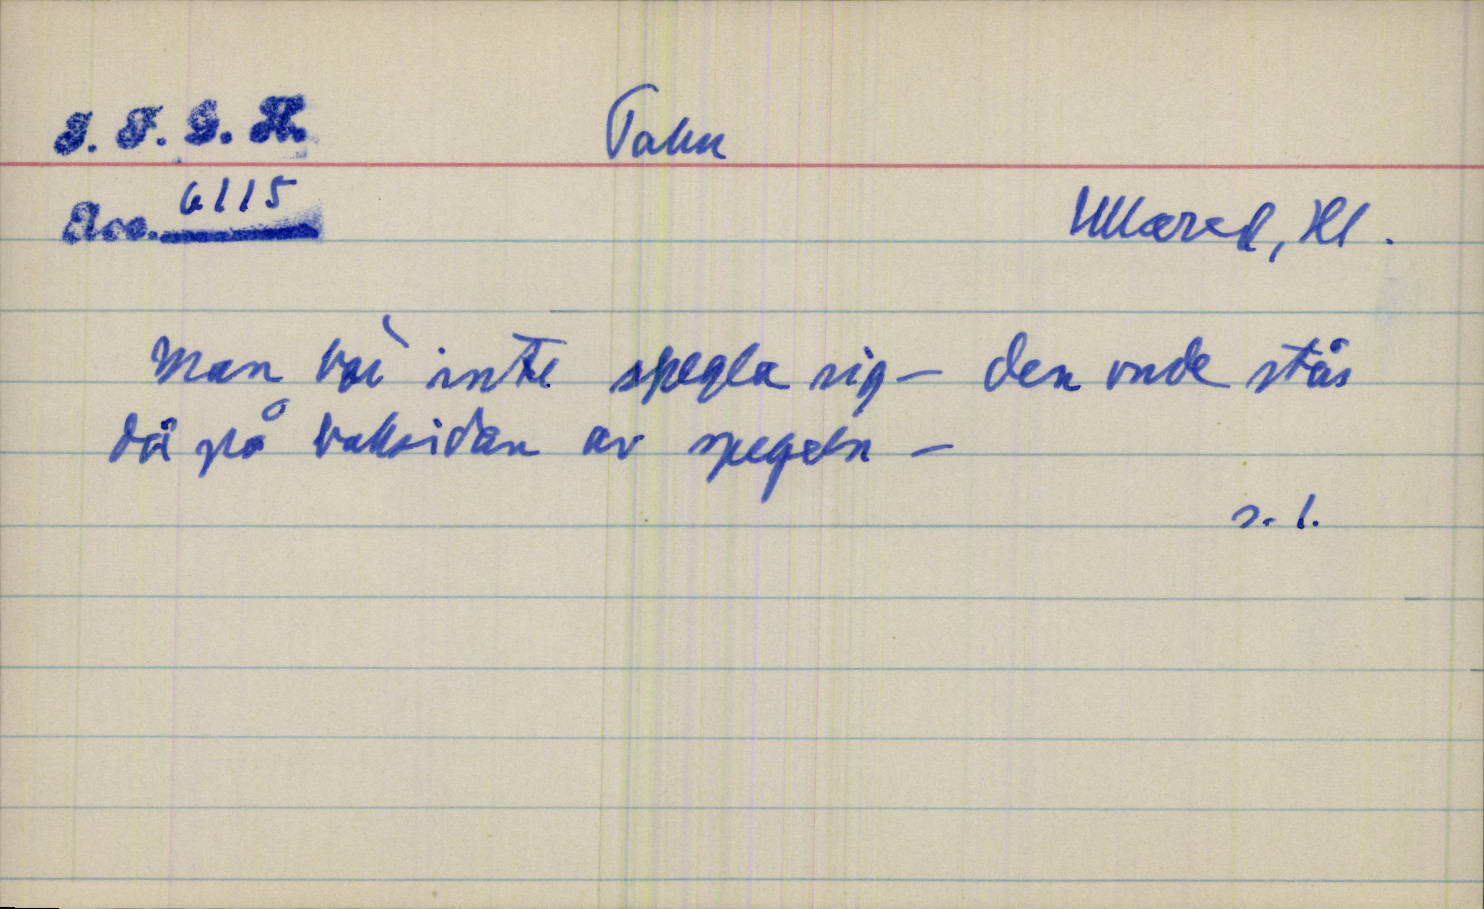 I. F. G. H.
Tabu
Acc. 6115
Ullared, Hl.
Man bör inte spegla sig – den onde står
då på baksidan av spegeln –
s. 1.